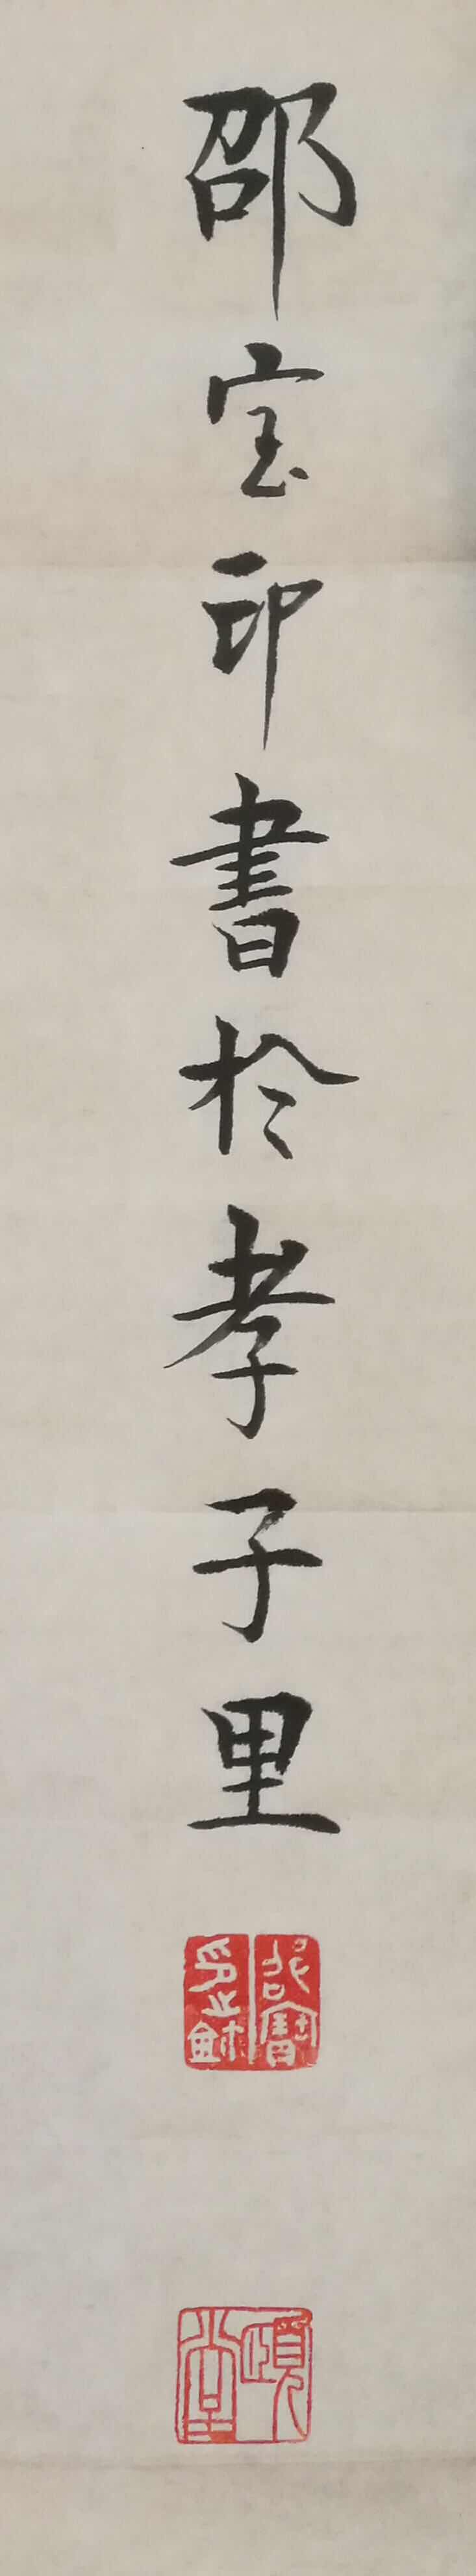 邵宝印書於孝子里